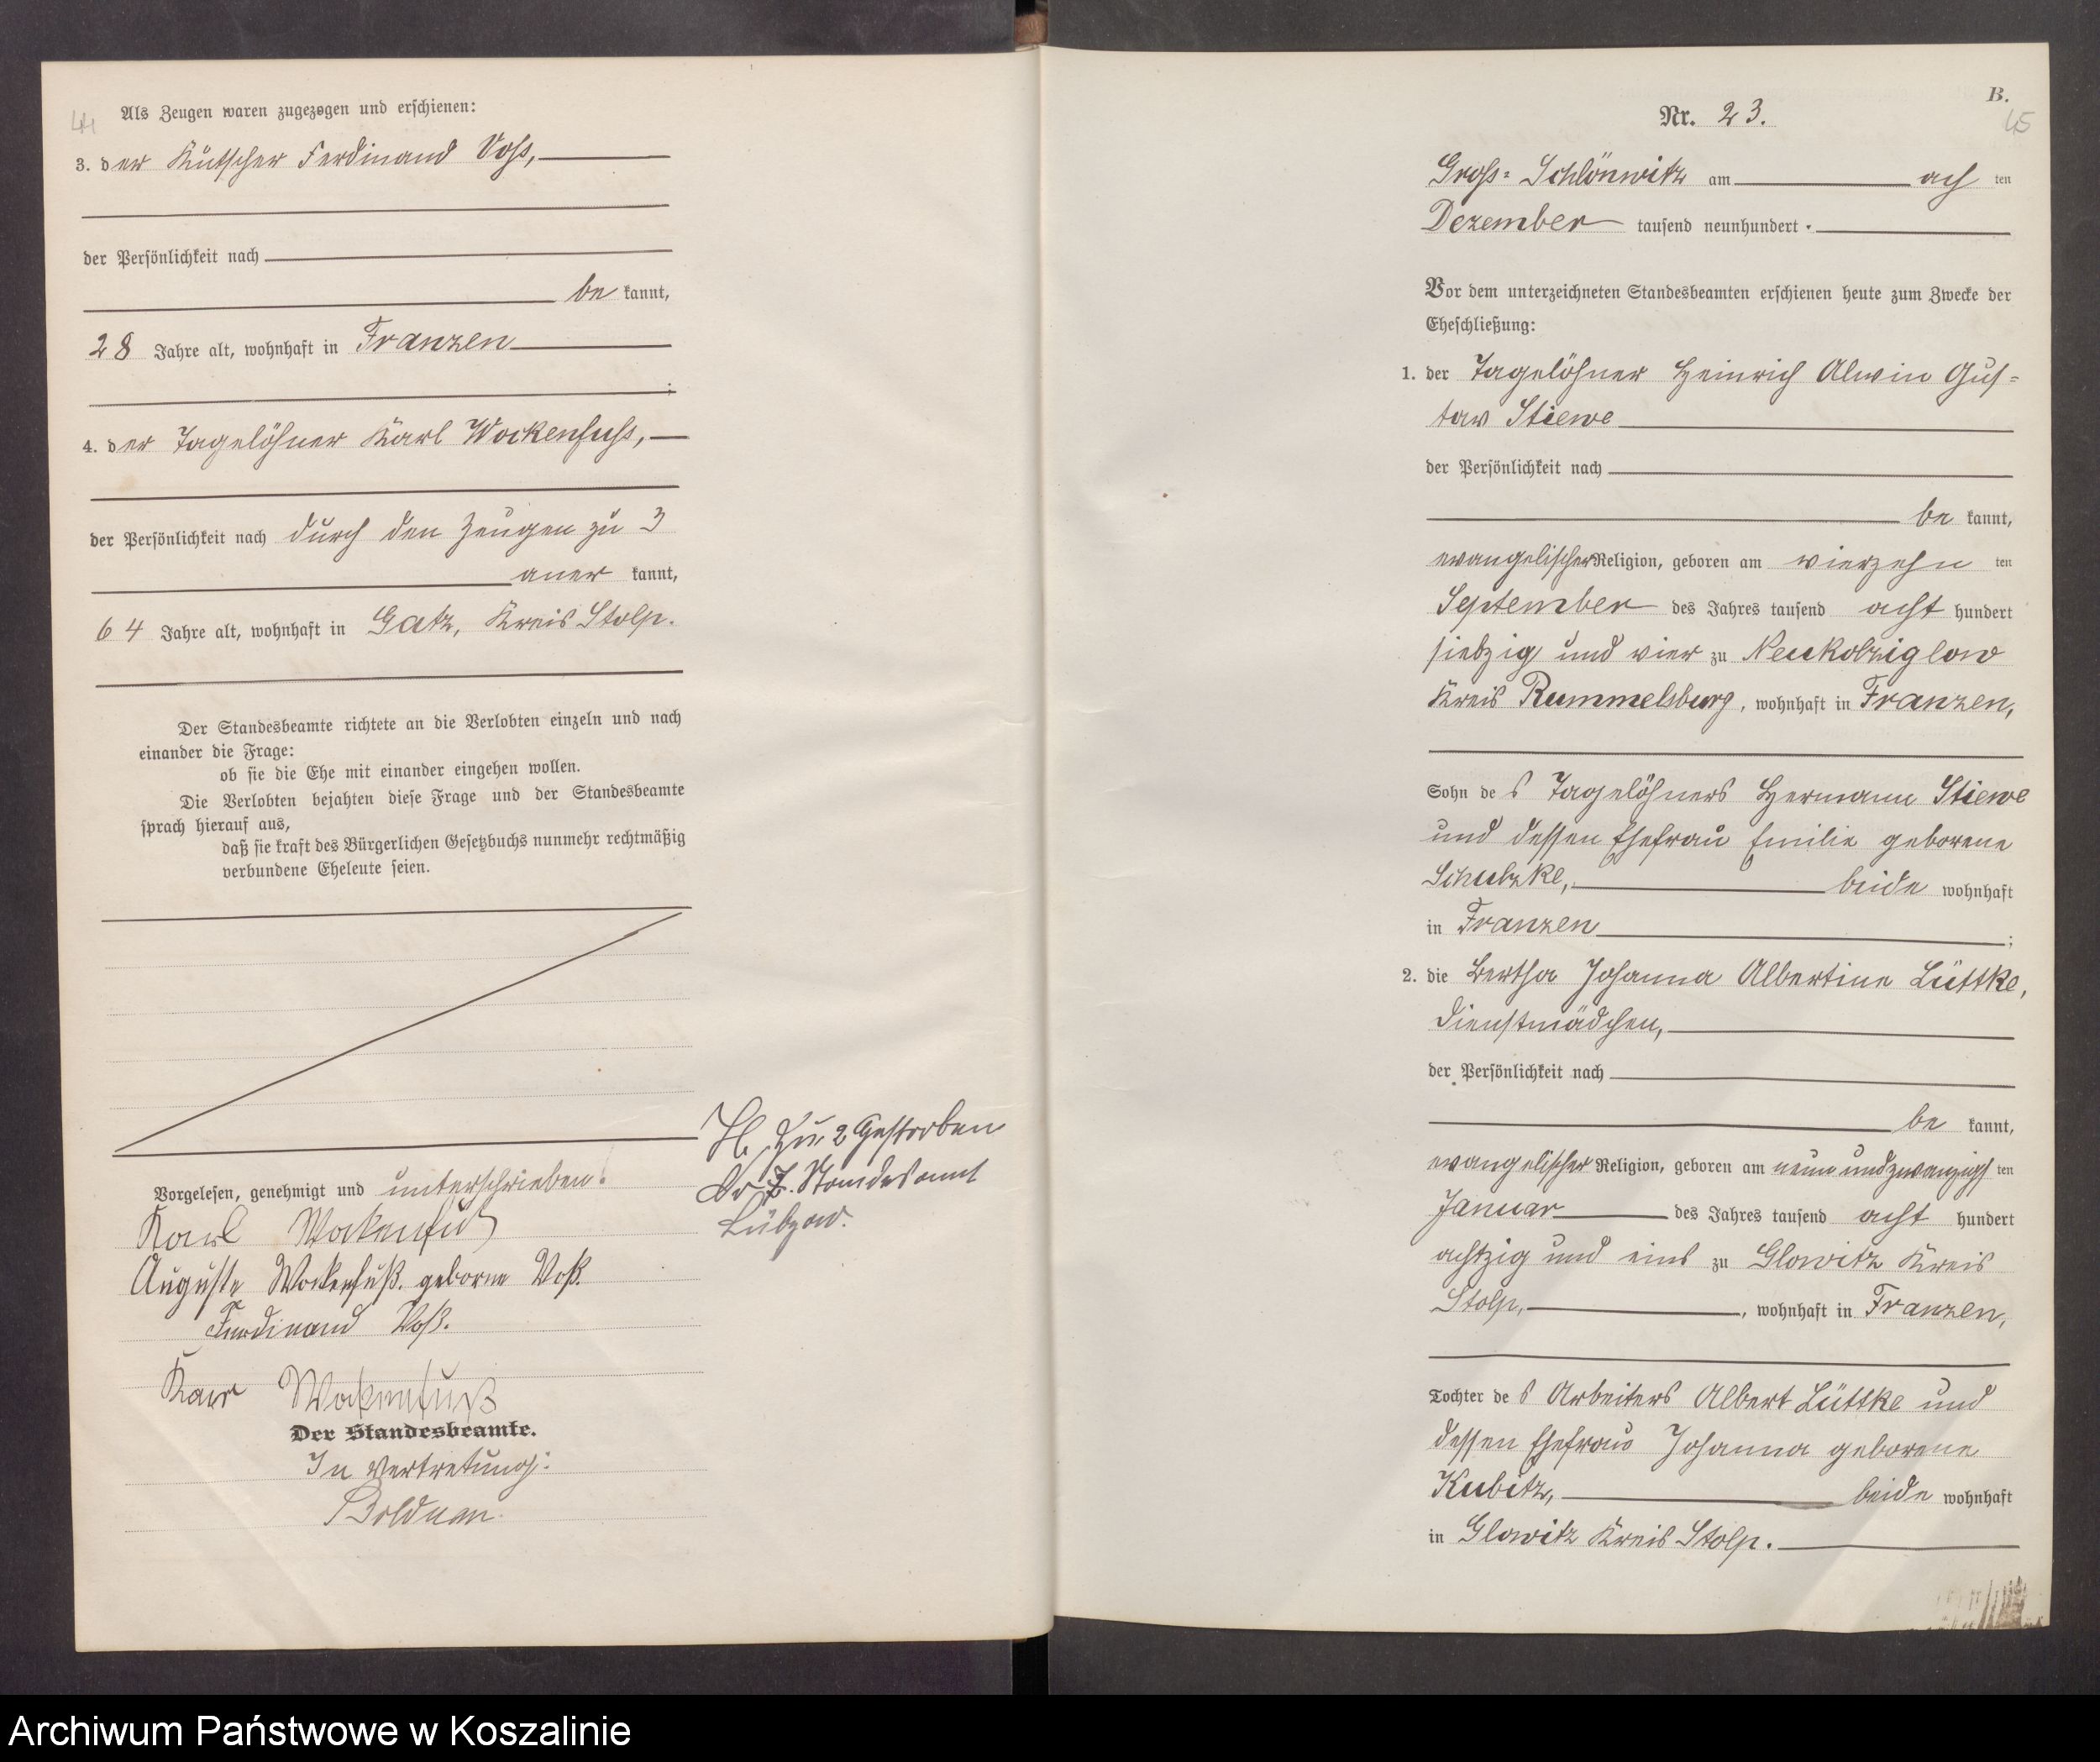 44
Als Zeugen waren zugezogen und erschienen:
3. der Kutscher Ferdinand Voss,
der Persönlichkeit nach
be kannt,
28 Jahre alt, wohnhaft in Franzen
;
4. der Tagelöhner Karl Wockenfuss,
der Persönlichkeit nach durch den Zeugen zu 3
aner kannt,
64 Jahre alt, wohnhaft in Gatz, Kreis Stolp.
Der Standesbeamte richtete an die Verlobten einzeln und nach
einander die Frage:
ob sie die Ehe mit einander eingehen wollen.
Die Verlobten bejahten diese Frage und der Standesbeamte
sprach hierauf aus,
daß sie kraft des Bürgerlichen Gesetzbuchs nunmehr rechtmäßig
verbundene Eheleute seien.
Vorgelesen, genehmigt und unterschrieben.
Karl Wockenfuß
Auguste Wockenfuß geborne Voß.
Ferdinand Voß.
Karl Wockenfuß
Der Standesbeamte.
In Vertretung:
Bolduan.
H. Zu 2 Gestorben
Standesamt
Lübzow.
B.
45
Nr. 23.
Gross-Schlönwitz am ach ten
Dezember tausend neunhundert
Vor dem unterzeichneten Standesbeamten erschienen heute zum Zwecke der
Eheschließung:
1. der Tagelöhner Heinrich Alwin Gus=
tav Stiewe
der Persönlichkeit nach
be kannt,
evangelischer Religion, geboren am vierzehn ten
September des Jahres tausend acht hundert
siebzig und vier zu Neukolziglow
Kreis Rummelsburg, wohnhaft in Franzen,
Sohn des Tagelöhners Hermann Stiewe
und dessen Ehefrau Emilie geborene
Schulzke, beide wohnhaft
in Franzen ;
2. die Bertha Johanna Albertine Lüttke,
Dienstmädchen,
der Persönlichkeit nach
be kannt,
evangelischer Religion, geboren am neunundzwanzigs ten
Januar des Jahres tausend acht hundert
achtzig und eins zu Glowitz Kreis
Stolp, , wohnhaft in Franzen,
Tochter des Arbeiters Albert Lüttke und
dessen Ehefrau Johanna geborene
Kubitz, beide wohnhaft
in Glowitz Kreis Stolp.
Archiwum Państwowe w Koszalinie